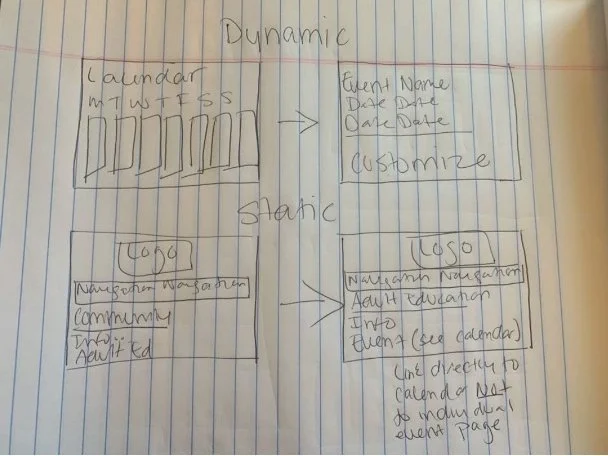 Dynamic
Calendar
M T W T F S S
Event Name
Date Date
Date Date
Customize
Static
Logo
Navigation Navigation
Community
Info
Adult Ed
Logo
Navigation Navigation
Adult Education
Info
Event (see calendar)
Link directly to
calendar Not
to individual
event page